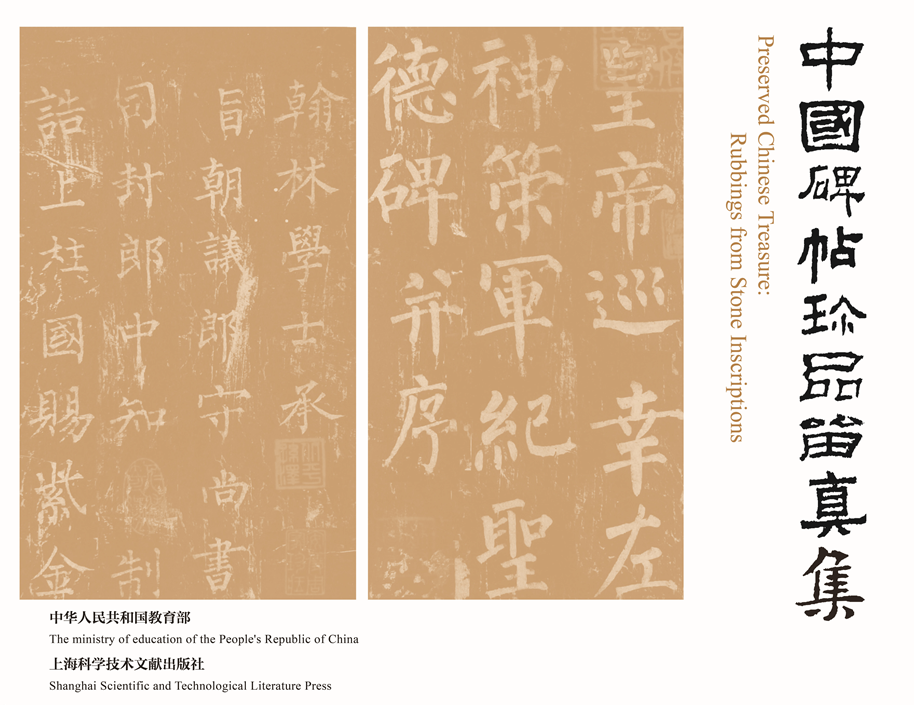 中國碑帖珎品留真集
Preserved Chinese Treasure:
Rubbings from Stone Inscriptions
皇帝巡幸左
神策軍紀聖
德碑并序
翰林學士承
旨朝議郎守尚書
司封郎中知制
誥上柱國賜紫金
中华人民共和国教育部
The ministry of education of the People's Republic of China
上海科学技术文献出版社
Shanghai Scientific and Technological Literature Press